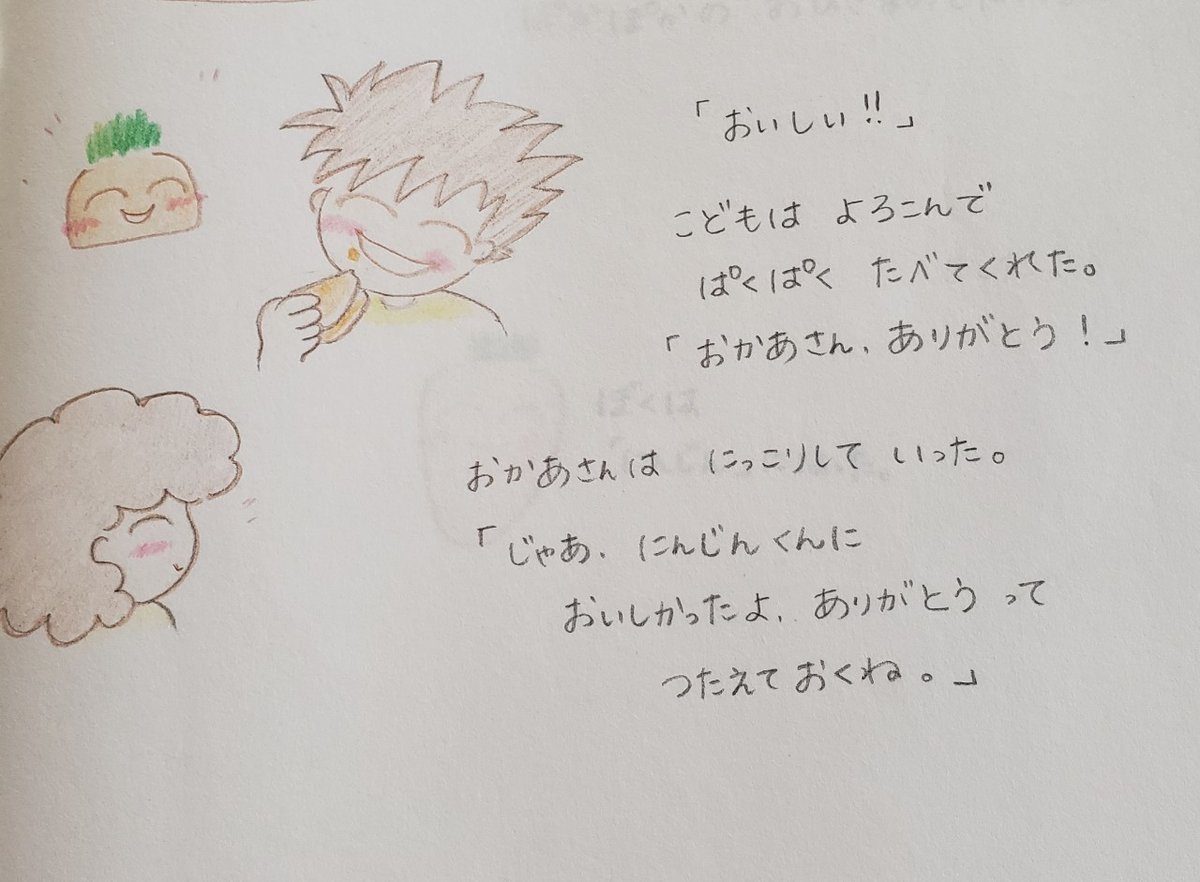 「おいしい!!」
こどもは よろこんで
ぱくぱく たべてくれた。
「おかあさん、ありがとう!」
おかあさんは にっこりして いった。
「じゃあ、にんじんくんに
おいしかったよ、ありがとう って
つたえておくね。」